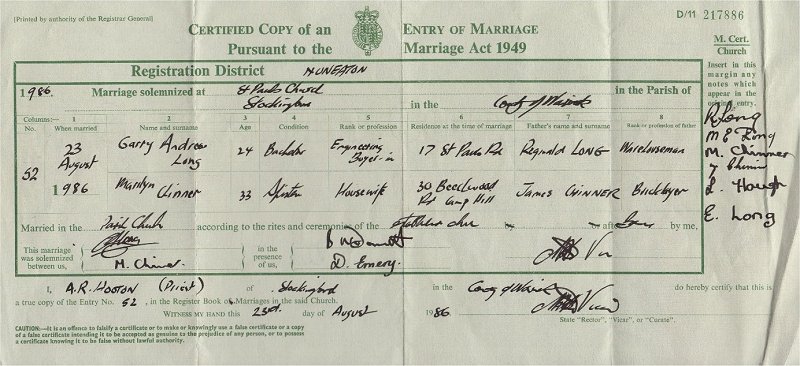 [Printed by authority of the Registrar General]
D/11 217886
CERTIFIED COPY of an ENTRY OF MARRIAGE
Pursuant to the Marriage Act 1949
M. Cert.
Church
Registration District NUNEATON
Insert in this
margin any
notes which
appear in the
original entry.
1986. Marriage solemnized at St Pauls Church Stockingford in the County of Warwick in the Parish of
Columns:— 1 2 3 4 5 6 7 8
No. When married Name and surname Age Condition Rank or profession Residence at the time of marriage Father's name and surname Rank or profession of father
52 23 August 1986
Garry Andrew Long 24 Bachelor Engineering Buyer 17 St Pauls Rd Reginald LONG Warehouseman
Marilyn Chinner 33 Spinster Housewife 30 Beechwood Rd Camp Hill JAMES CHINNER Bricklayer
R Long
M E Long
M. Chinner
L. Hough
E. Long
Married in the Parish Church according to the rites and ceremonies of the or after by me,
This marriage
was solemnized
between us,
Long
M. Chinner
in the
presence
of us,
D. Emery.
Vicar
I, A.R. HOOTON (Priest) of Stockingford in the County of Warwick do hereby certify that this is
a true copy of the Entry No. 52, in the Register Book of Marriages in the said Church.
WITNESS MY HAND this 23rd day of August 1986. Vicar
State "Rector", "Vicar", or "Curate".
CAUTION:—It is an offence to falsify a certificate or to make or knowingly use a false certificate or a copy
of a false certificate intending it to be accepted as genuine to the prejudice of any person, or to possess
a certificate knowing it to be false without lawful authority.